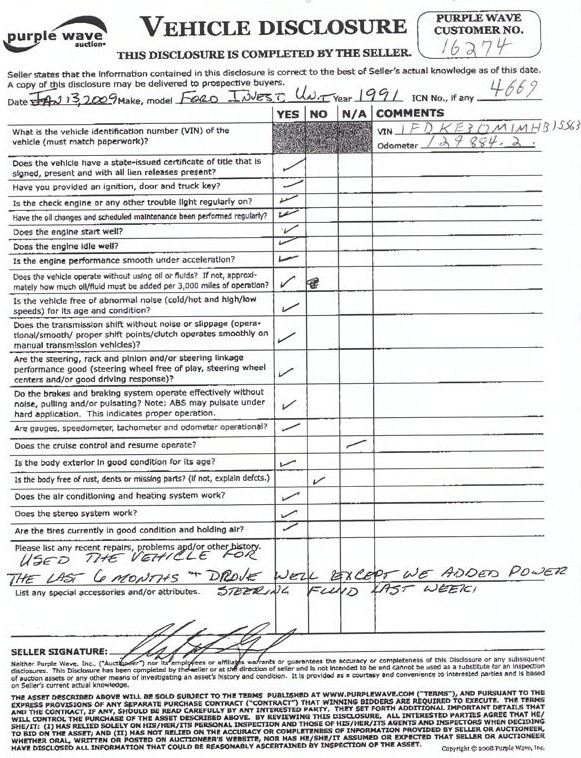 purple wave
auction
VEHICLE DISCLOSURE
THIS DISCLOSURE IS COMPLETED BY THE SELLER.
PURPLE WAVE
CUSTOMER NO.
16274
Seller states that the information contained in this disclosure is correct to the best of Seller's actual knowledge as of this date.
A copy of this disclosure may be delivered to prospective buyers.
Date JAN 13, 2009 Make, model FORD INVEST. UNIT Year 1991 ICN No., if any 4669
YES NO N/A COMMENTS
What is the vehicle identification number (VIN) of the
vehicle (must match paperwork)?
VIN 1FDKE30M1MHB15563
Odometer 129884.2
Does the vehicle have a state-issued certificate of title that is
signed, present and with all lien releases present?
Have you provided an ignition, door and truck key?
Is the check engine or any other trouble light regularly on?
Have the oil changes and scheduled maintenance been performed regularly?
Does the engine start well?
Does the engine idle well?
Is the engine performance smooth under acceleration?
Does the vehicle operate without using oil or fluids? If not, approxi-
mately how much oil/fluid must be added per 3,000 miles of operation?
Is the vehicle free of abnormal noise (cold/hot and high/low
speeds) for its age and condition?
Does the transmission shift without noise or slippage (opera-
tional/smooth/ proper shift points/clutch operates smoothly on
manual transmission vehicles)?
Are the steering, rack and pinion and/or steering linkage
performance good (steering wheel free of play, steering wheel
centers and/or good driving response)?
Do the brakes and braking system operate effectively without
noise, pulling and/or pulsating? Note: ABS may pulsate under
hard application. This indicates proper operation.
Are gauges, speedometer, tachometer and odometer operational?
Does the cruise control and resume operate?
Is the body exterior in good condition for its age?
Is the body free of rust, dents or missing parts? (if not, explain defcts.)
Does the air conditioning and heating system work?
Does the stereo system work?
Are the tires currently in good condition and holding air?
Please list any recent repairs, problems and/or other history.
USED THE VEHICLE FOR
THE LAST 6 MONTHS + DROVE WELL EXCEPT WE ADDED POWER
List any special accessories and/or attributes. STEERING FLUID LAST WEEK.
SELLER SIGNATURE:
Neither Purple Wave, Inc., ("Auctioneer") nor its employees or affiliates warrants or guarantees the accuracy or completeness of this Disclosure or any subsequent
disclosures. This Disclosure has been completed by the seller or at the direction of seller and is not intended to be and cannot be used as a substitute for an inspection
of auction assets or any other means of investigating an asset's history and condition. It is provided as a courtesy and convenience to interested parties and is based
on Seller's current actual knowledge.
THE ASSET DESCRIBED ABOVE WILL BE SOLD SUBJECT TO THE TERMS PUBLISHED AT WWW.PURPLEWAVE.COM ("TERMS"), AND PURSUANT TO THE
EXPRESS PROVISIONS OF ANY SEPARATE PURCHASE CONTRACT ("CONTRACT") THAT WINNING BIDDERS ARE REQUIRED TO EXECUTE. THE TERMS
AND THE CONTRACT, IF ANY, SHOULD BE READ CAREFULLY BY ANY INTERESTED PARTY. THEY SET FORTH ADDITIONAL IMPORTANT DETAILS THAT
WILL CONTROL THE PURCHASE OF THE ASSET DESCRIBED ABOVE. BY REVIEWING THIS DISCLOSURE, ALL INTERESTED PARTIES AGREE THAT HE/
SHE/IT: (I) HAS RELIED SOLELY ON HIS/HER/ITS PERSONAL INSPECTION AND THOSE OF HIS/HER/ITS AGENTS AND INSPECTORS WHEN DECIDING
TO BID ON THE ASSET; AND (II) HAS NOT RELIED ON THE ACCURACY OR COMPLETENESS OF INFORMATION PROVIDED BY SELLER OR AUCTIONEER,
WHETHER ORAL, WRITTEN OR POSTED ON AUCTIONEER'S WEBSITE, NOR HAS HE/SHE/IT ASSUMED OR EXPECTED THAT SELLER OR AUCTIONEER
HAVE DISCLOSED ALL INFORMATION THAT COULD BE REASONABLY ASCERTAINED BY INSPECTION OF THE ASSET.
Copyright © 2008 Purple Wave, Inc.